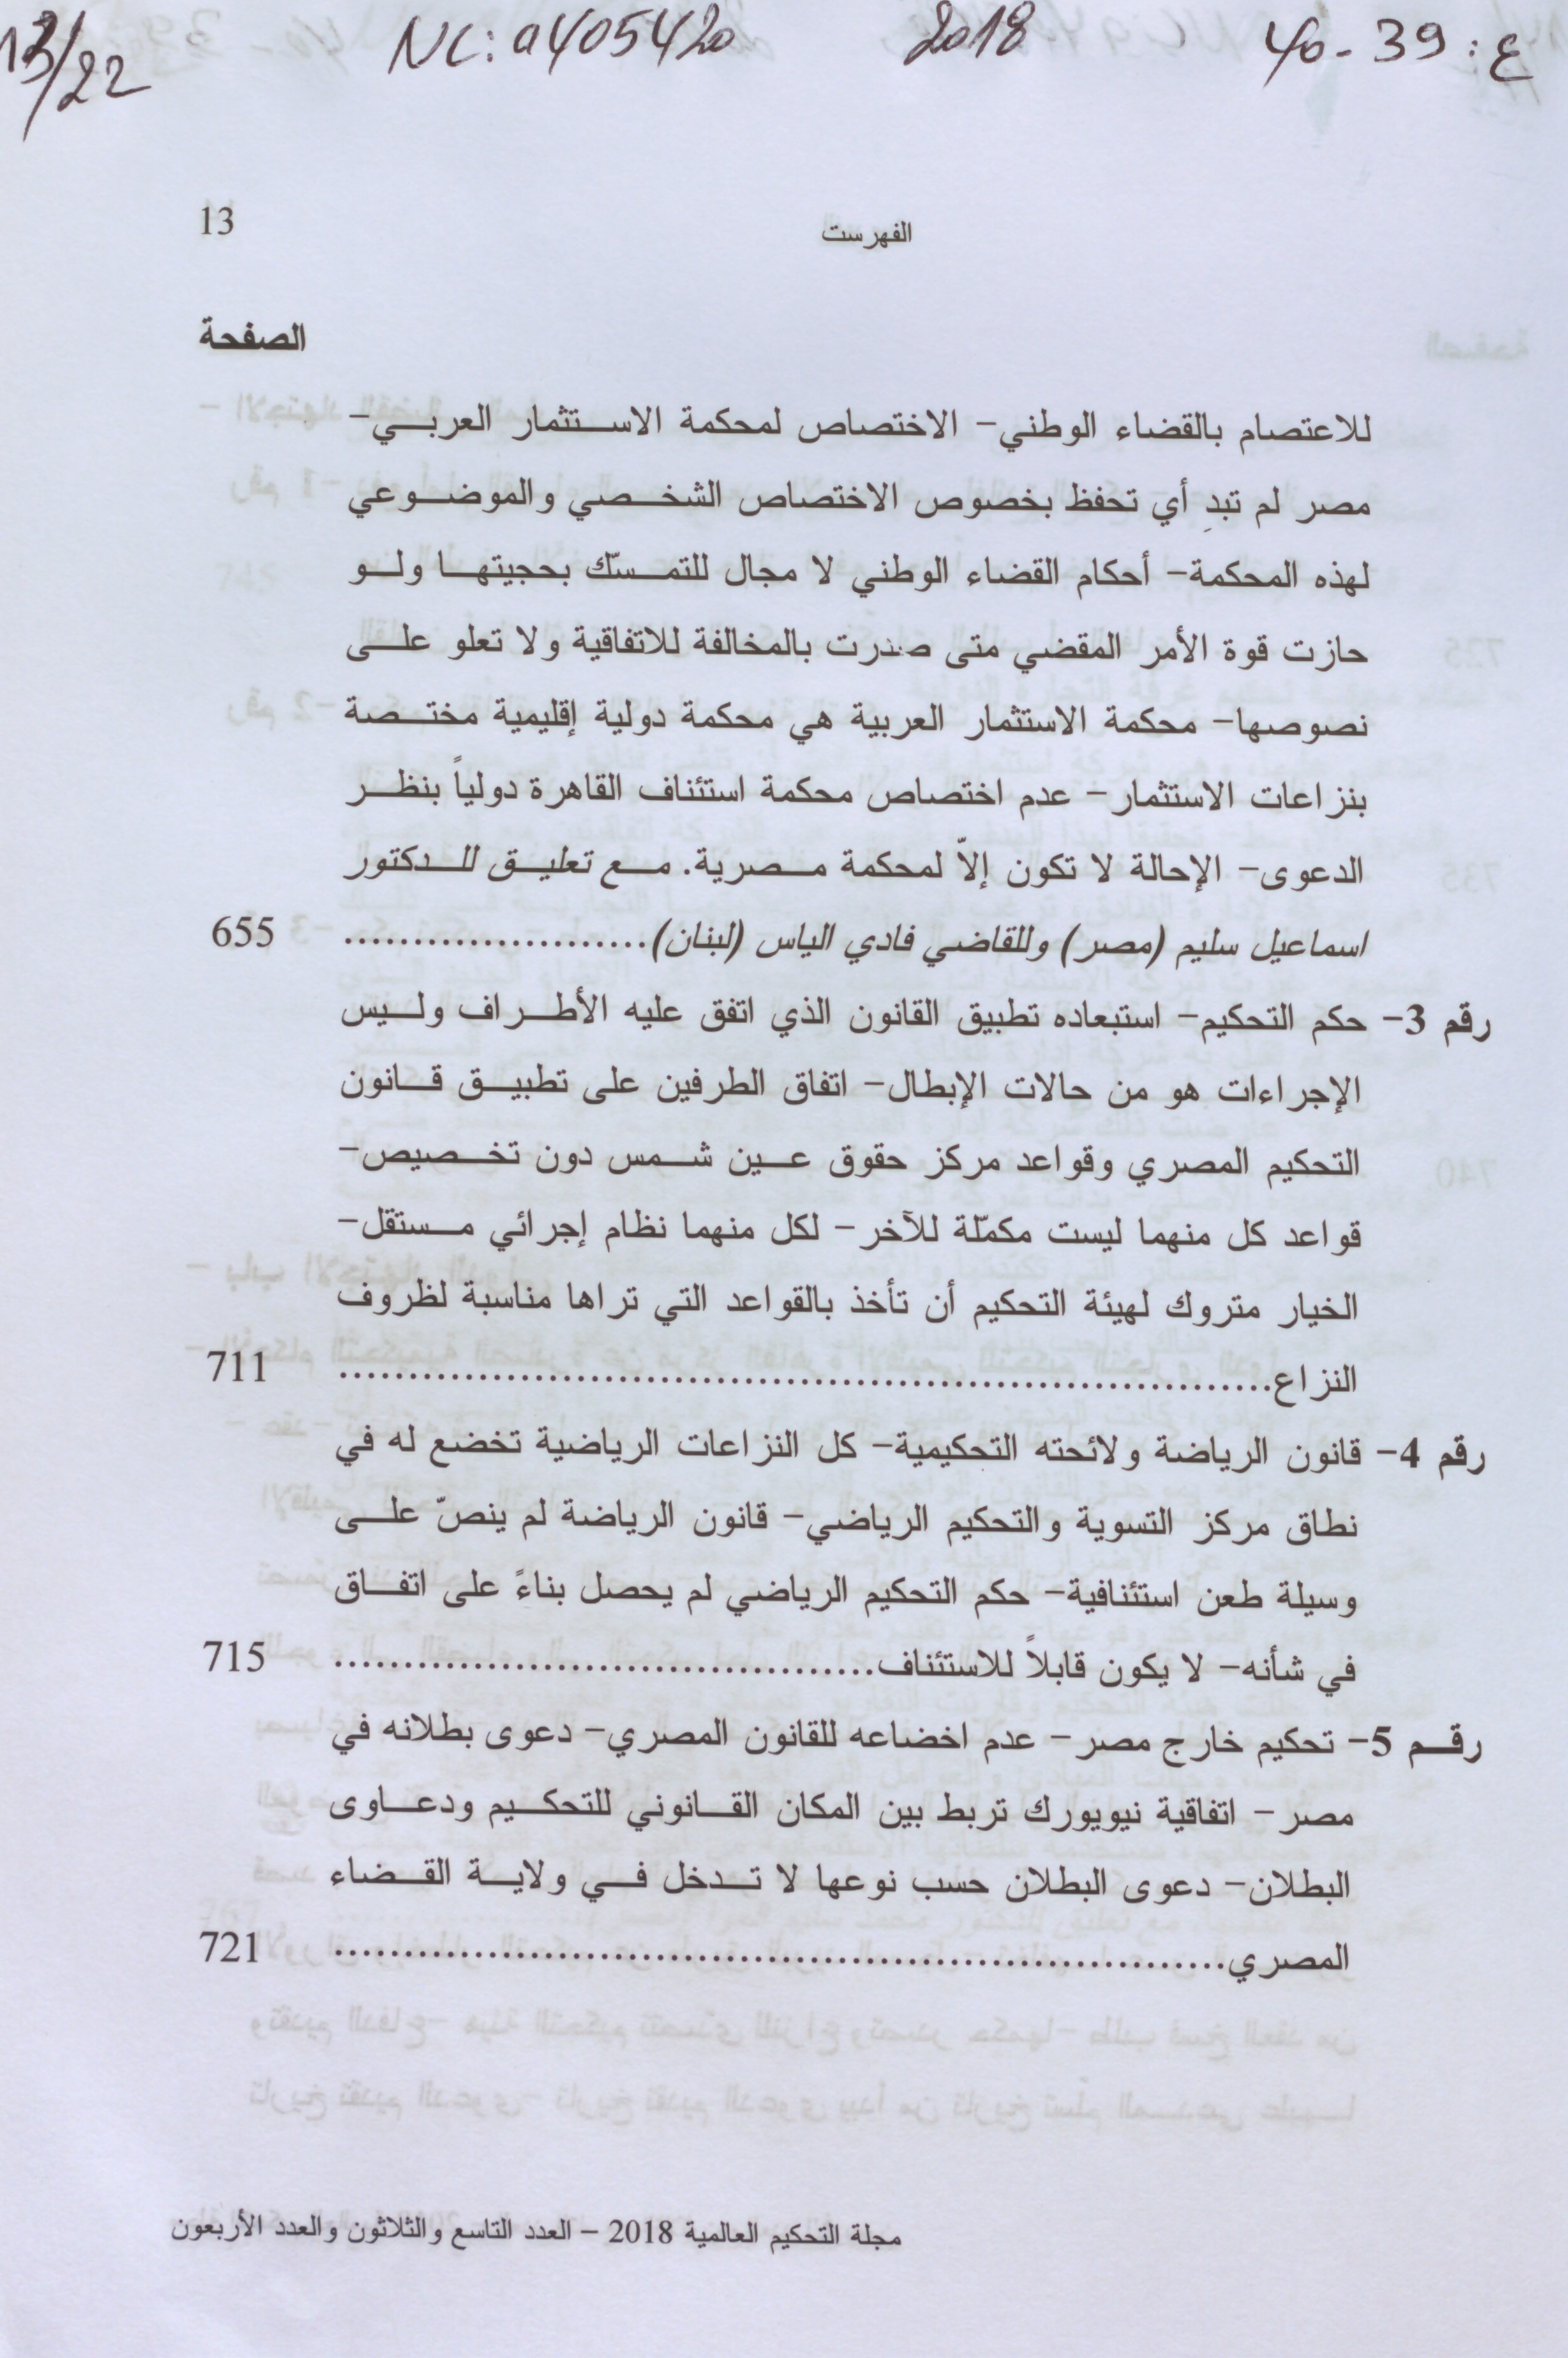 ع: 39 - 40 2018 NC: a405420 13/22
الفهرست 13
الصفحة
للاعتصام بالقضاء الوطني- الاختصاص لمحكمة الاستثمار العربي-
مصر لم تبدِ أي تحفظ بخصوص الاختصاص الشخصي والموضوعي
لهذه المحكمة- أحكام القضاء الوطني لا مجال للتمسّك بحجيتها ولو
حازت قوة الأمر المقضي متى صدرت بالمخالفة للاتفاقية ولا تعلو على
نصوصها- محكمة الاستثمار العربية هي محكمة دولية إقليمية مختصة
بنزاعات الاستثمار- عدم اختصاص محكمة استئناف القاهرة دولياً بنظر
الدعوى- الإحالة لا تكون إلاّ لمحكمة مصرية. مع تعليق للدكتور
اسماعيل سليم (مصر) وللقاضي فادي الياس (لبنان)...................... 655
رقم 3- حكم التحكيم- استبعاده تطبيق القانون الذي اتفق عليه الأطراف وليس
الإجراءات هو من حالات الإبطال- اتفاق الطرفين على تطبيق قانون
التحكيم المصري وقواعد مركز حقوق عين شمس دون تخصيص-
قواعد كل منهما ليست مكمّلة للآخر- لكل منهما نظام إجرائي مستقل-
الخيار متروك لهيئة التحكيم أن تأخذ بالقواعد التي تراها مناسبة لظروف
النزاع................................................................... 711
رقم 4- قانون الرياضة ولائحته التحكيمية- كل النزاعات الرياضية تخضع له في
نطاق مركز التسوية والتحكيم الرياضي- قانون الرياضة لم ينصّ على
وسيلة طعن استئنافية- حكم التحكيم الرياضي لم يحصل بناءً على اتفاق
في شأنه- لا يكون قابلاً للاستئناف....................................... 715
رقم 5- تحكيم خارج مصر- عدم اخضاعه للقانون المصري- دعوى بطلانه في
مصر- اتفاقية نيويورك تربط بين المكان القانوني للتحكيم ودعاوى
البطلان- دعوى البطلان حسب نوعها لا تدخل في ولاية القضاء
المصري................................................................ 721
مجلة التحكيم العالمية 2018 – العدد التاسع والثلاثون والعدد الأربعون